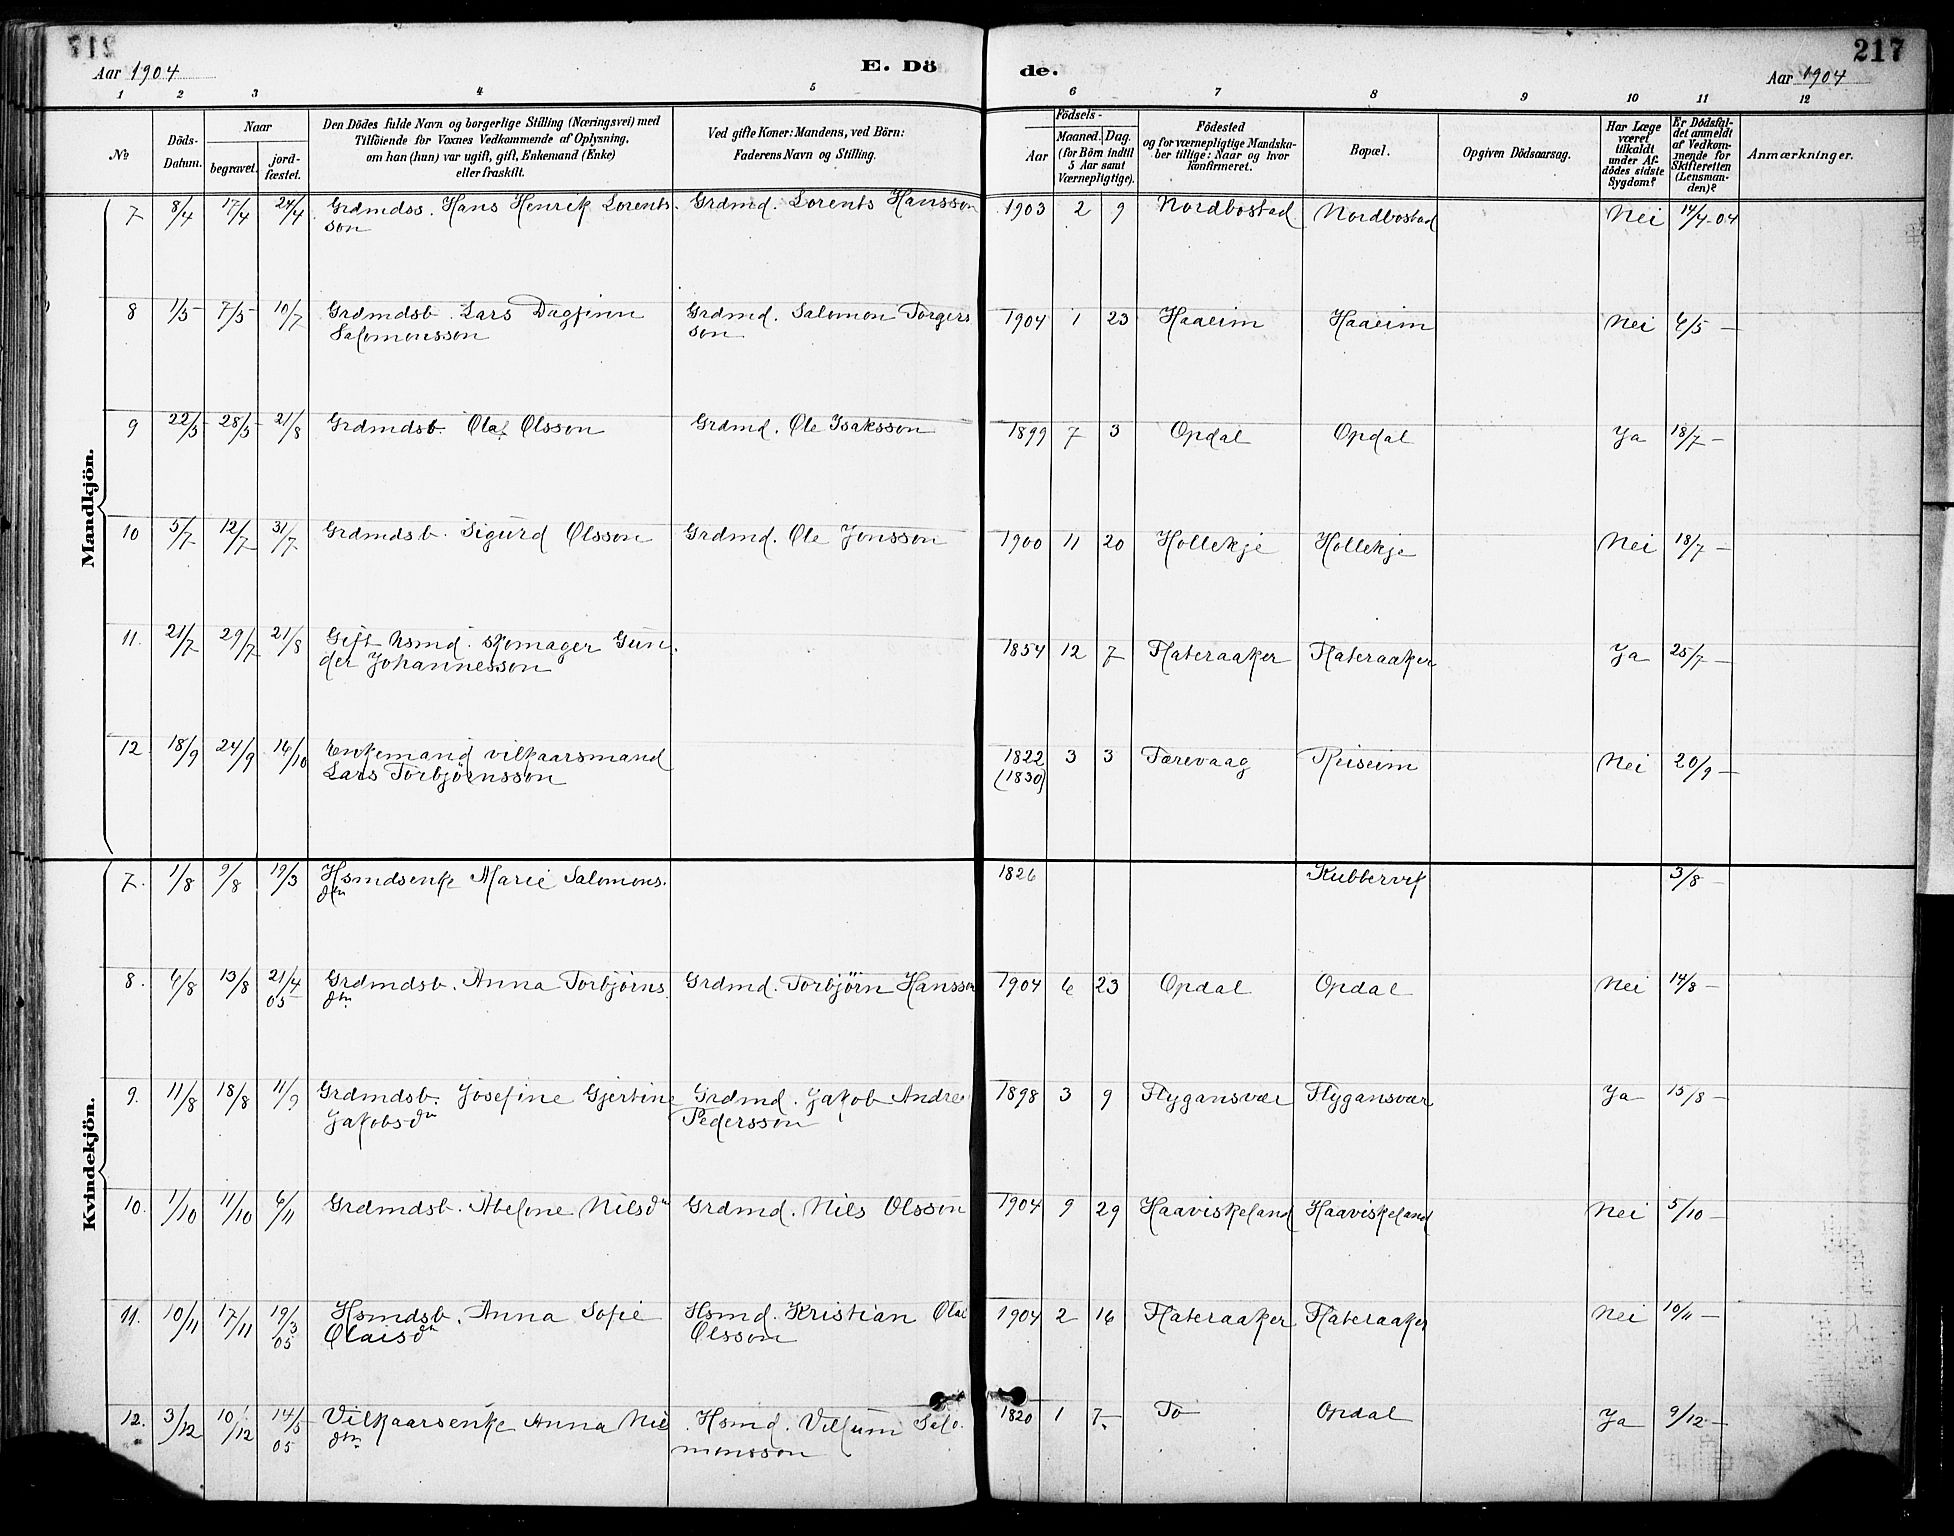 217
Aar 1904
E. Dö
de.
Aar 1904
217
1 2 3 4 5
6 7 8 9 10 11 12
No
Döds-
Datum.
Naar
begravet.
jord-
fæstet.
Den Dödes fulde Navn og borgerlige Stilling (Næringsvei) med
Tilföiende for Voxnes Vedkommende af Oplysning,
om han (hun) var ugift, gift, Enkemand (Enke)
eller fraskilt.
Ved gifte Koner: Mandens, ved Börn:
Faderens Navn og Stilling.
Födsels-
Aar
Maaned. Dag.
(for Börn indtil
5 Aar samt
Værnepligtige).
Födested
og for værnepligtige Mandska-
ber tillige: Naar og hvor
konfirmeret.
Bopæl.
Opgiven Dödsaarsag.
Har Læge
været
tilkaldt
under Af-
dödes sidste
Sygdom?
Er Dödsfal-
det anmeldt
af Vedkom-
mende for
Skifteretten
(Lensman-
den)?
Anmærkninger.
Mandkjön.
7 8/4 17/4 24/4 Grdmdss. Hans Henrik Lorents- Grdmd. Lorents Hansson 1903 2 9 Nordbostad Nordbostad Nei 14/4-04
son
8 1/5 7/5 10/7 Grdmdsb. Lars Dagfinn Grdmd. Salomon Torgers 1904 1 23 Haaeim Haaeim Nei 6/5 -
Salomonsson son
9 22/5 28/5 21/8 Grdmdsb. Olaf Olsson Grdmd. Ole Isaksson 1899 7 3 Opdal Opdal Ja 18/7 -
10 5/7 12/7 31/7 Grdmdsb. Sigurd Olsson Grdmd. Ole Jonsson 1900 11 20 Hollekje Hollekje Nei 18/7 -
11. 21/7 29/7 21/8 Gift hsmd. skomager Gun- 1854 12 7 Flateraaker Flateraaker Ja 25/7 -
der Johannesson
12 18/9 24/9 16/10 Enkemand vilkaarsmand 1822 3 3 Færevaag Reiseim Nei 20/9 -
Lars Torbjørnsson (1830)
Kvindekjön.
7. 1/8 9/8 19/3 Hsmdsenke Marie Salomons- 1826 Kubbervik 3/8 -
dtr
8. 6/8 13/8 21/4 Grdmdsb. Anna Torbjørns Grdmd. Torbjørn Hansson 1904 6 23 Opdal Opdal Nei 14/8 -
05 dtr.
9. 11/8 18/8 11/9 Grdmdsb. Josefine Gjertine Grdmd. Jakob Andre 1898 3 9 Flygansvær Flygansvær Ja 15/8 -
Jakobsdtr Pedersson
10. 1/10 11/10 6/11 Grdmdsb. Abelone Nilsdtr Grdmd. Nils Olsson 1904 9 29 Haaviskeland Haaviskeland Nei 5/10 -
11. 10/11 17/11 19/3 Hsmdsb. Anna Sofie Hsmd. Kristian Olai 1904 2 16 Flateraaker Flateraaker Nei 10/11 -
05 Olaisdtr Olsson
12. 3/12 10/12 14/5 Vilkaarsenke Anna Nils Hsmd. Villum Salo- 1820 1 7 To Opdal Ja 9/12 -
05 dtr. monsson